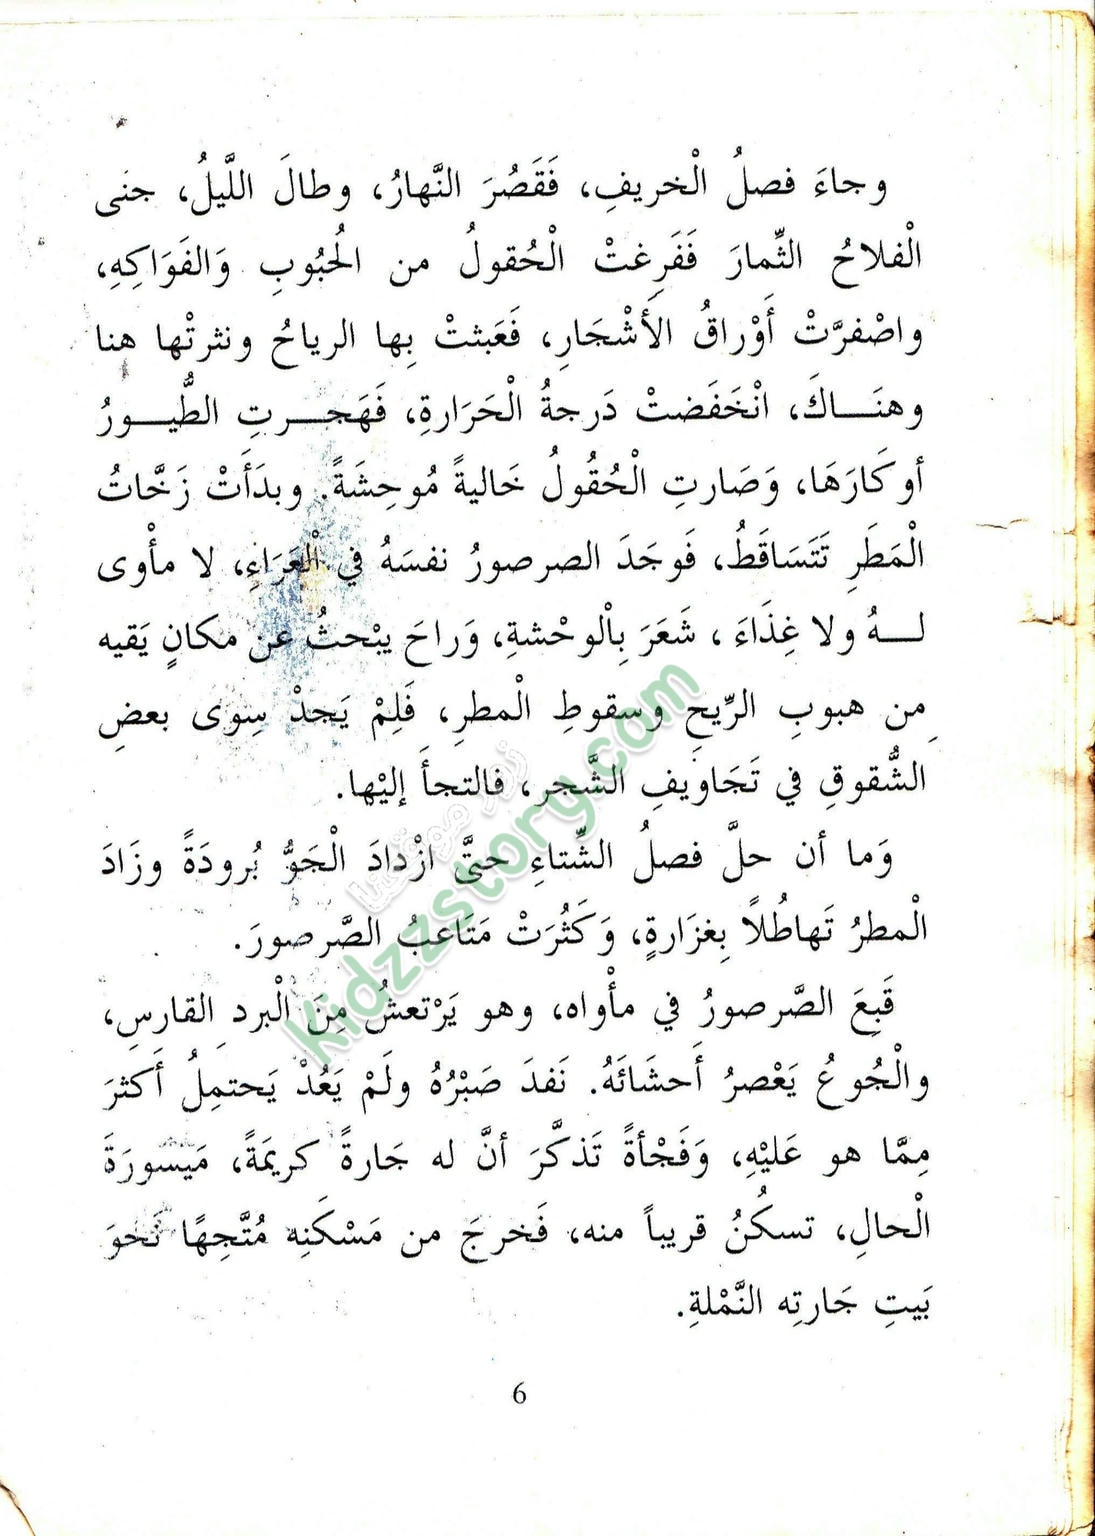 وجاءَ فصلُ الْخريفِ، فَقَصُرَ النَّهارُ، وطالَ اللَّيلُ، جنى
الْفلاحُ الثِّمارَ فَفَرِغتْ الْحُقولُ من الحُبُوبِ وَالفَوَاكِهِ،
واصْفرَّتْ أَوْراقُ الأَشْجَارِ، فَعَبثتْ بِها الرياحُ ونثرتْها هنا
وهنَـــاكَ، انْخَفَضتْ دَرجةُ الْحَرَارةِ، فَهَجـــرتِ الطُّيـــورُ
أوكَارَهَا، وَصَارتِ الْحُقُولُ خَاليةً مُوحِشَةً. وبدَأَتْ زَخَّاتُ
الْمَطَرِ تَتَسَاقَطُ، فَوجَدَ الصرصورُ نفسَهُ في الْعَرَاءِ، لا مأْوى
لـــهُ ولا غِذَاءَ ، شَعَرَ بِالْوحْشةِ، وَراحَ يبْحثُ عن مكانٍ يَقيه
مِن هبوبِ الرِّيحِ وسقوطِ الْمطرِ، فَلِمْ يَجدْ سِوى بعضِ
الشُّقوقِ في تَجَاويفِ الشَّجرِ، فالتجأَ إليْها.
وَما أن حلَّ فصلُ الشِّتاءِ حتَّى ازْدادَ الْجَوُّ بُرودَةً وزَادَ
الْمطرُ تَهاطُلاً بِغزَارةٍ، وَكَثُرَتْ مَتَاعبُ الصَّرصورَ.
قَبِعَ الصَّرصورُ في مأْواه، وهو يَرْتعشُ مِنَ الْبردِ القارسِ،
والْجُوعُ يَعْصرُ أَحشَائَهُ. نَفدَ صَبْرُهُ ولَمْ يَعُدْ يَحتمِلُ أَكثرَ
مِمَّا هو عَليْهِ، وَفَجْأةً تَذكَّرَ أنَّ له جَارةً كريمَةً، مَيسُورَةَ
الْحالِ، تسكُنُ قريباً منه، فَخرجَ من مَسْكَنِه مُتَّجِهًا نَحوَ
بَيتِ جَارتِه النَّمْلةِ.
6
زوروا موقعنا
kidzzstory.com